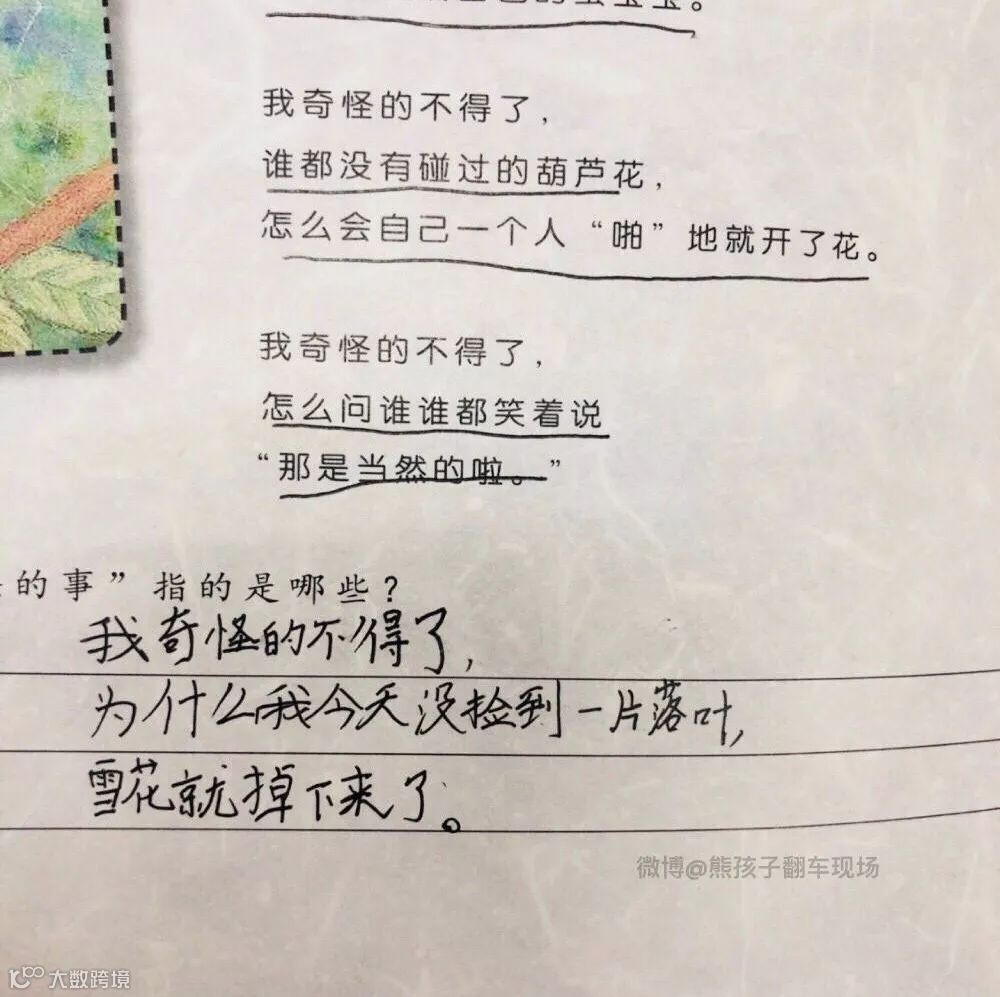 的蚕宝宝。
我奇怪的不得了，
谁都没有碰过的葫芦花，
怎么会自己一个人“啪”地就开了花。
我奇怪的不得了，
怎么问谁谁都笑着说
“那是当然的啦。”
的事”指的是哪些？
我奇怪的不得了，
为什么我今天没捡到一片落叶，
雪花就掉下来了。
微博@熊孩子翻车现场
大数跨境